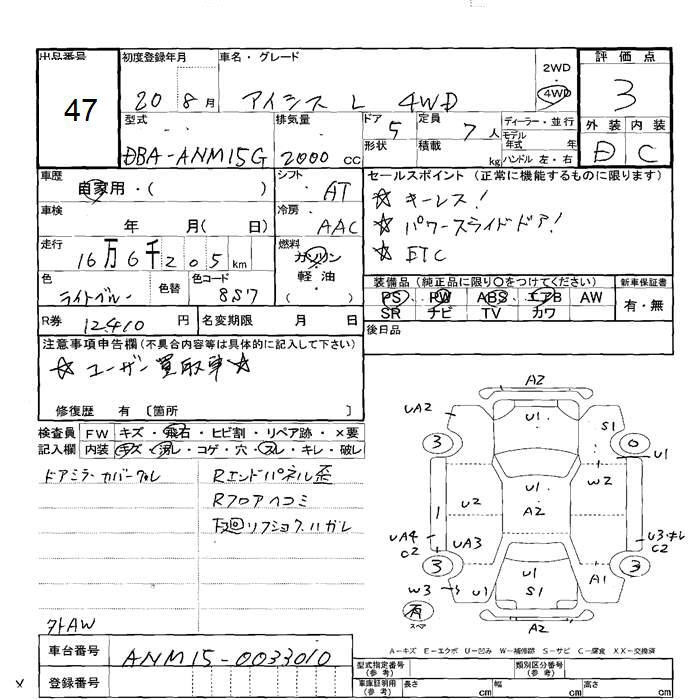 出品番号 初度登録年月 車名・グレード 評価点
47 20 8月 アイシス L 4WD 2WD 4WD 3
型式 排気量 ドア 5 定員 7人 ディーラー・並行 外装 内装
DBA-ANM15G 2000cc 形状 積載 kg モデル年式 年 ハンドル 左・右 D C
車歴 自家用・( ) シフト AT セールスポイント (正常に機能するものに限ります)
車検 年 月( 日) 冷房 AAC ☆ キーレス!
☆ パワースライドドア!
走行 16万6千205km 燃料 ガソリン 軽油 ( ) ☆ ETC
色 ライトブルー 色替 色コード 8S7 装備品 (純正品に限り○をつけてください) 新車保証書
PS PW ABS エアB AW 有・無
SR ナビ TV カワ
R券 12410円 名変期限 月 日 後日品
注意事項申告欄 (不具合内容等は具体的に記入して下さい)
☆ ユーザー買取車 ☆
修復歴 有 〔箇所 〕
検査員 FW キズ・飛石・ヒビ割・リペア跡・×要
記入欄 内装 キズ・汚レ・コゲ・穴・スレ・キレ・破レ
ドアミラーカバーワレ Rエンドパネル歪
Rフロアヘコミ
下廻リフショクハガレ
外AW
A2
UA2 U1 S1
3 0 U1
W2
U2 U1
1 A2
UA4 C2 UA3 U3・キレ C2
3 3
W3 U1 U1 S1 A1
有 スペア A2
A-キズ E-エクボ U-凹み W-補修跡 S-サビ C-腐食 XX-交換済
車台番号 ANM15-0033010 型式指定番号 (参考) 類別区分番号 (参考)
× 登録番号 車庫証明用 (参考) 長さ cm 幅 cm 高さ cm